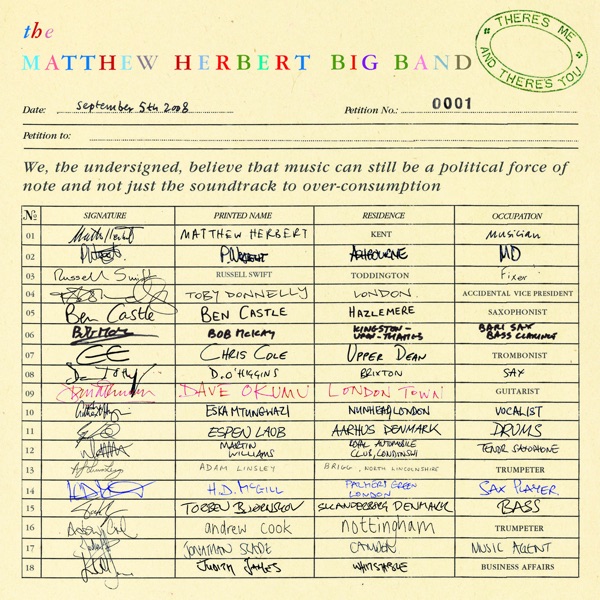 the
MATTHEW HERBERT BIG BAND
THERES ME
AND THERES YOU
Date: September 5th 2008 Petition No.: 0001
Petition to:
We, the undersigned, believe that music can still be a political force of
note and not just the soundtrack to over-consumption
No SIGNATURE PRINTED NAME RESIDENCE OCCUPATION
01 MATTHEW HERBERT KENT Musician
02 P. WRIGHT ASHBOURNE MD
03 Russell Swift RUSSELL SWIFT TODDINGTON Fixer
04 TOBY DONNELLY LONDON. ACCIDENTAL VICE PRESIDENT
05 Ben Castle BEN CASTLE HAZLEMERE SAXOPHONIST
06 BOB MCKAY KINGSTON-UPON-THAMES BARI SAX BASS CLARINET
07 CHRIS COLE UPPER DEAN TROMBONIST
08 D. O'HIGGINS BRIXTON SAX
09 DAVE OKUMU LONDON TOWN GUITARIST
10 ESKA MTUNGWAZI NUNHEAD, LONDON VOCALIST
11 ESPEN LAUB AARHUS DENMARK DRUMS
12 MARTIN WILLIAMS ROYAL AUTOMOBILE CLUB, TENOR SAXOPHONE
13 ADAM LINSLEY BRIGG, NORTH LINCOLNSHIRE TRUMPETER
14 H.D. MCGILL PALMERS GREEN LONDON SAX PLAYER
15 TORBEN BJØRNSKOV SKANDERBORG DENMARK BASS
16 andrew cook nottingham TRUMPETER
17 JONATHAN SLADE CAMDEN MUSIC AGENT
18 JUDITH JAMES WHITSTABLE BUSINESS AFFAIRS